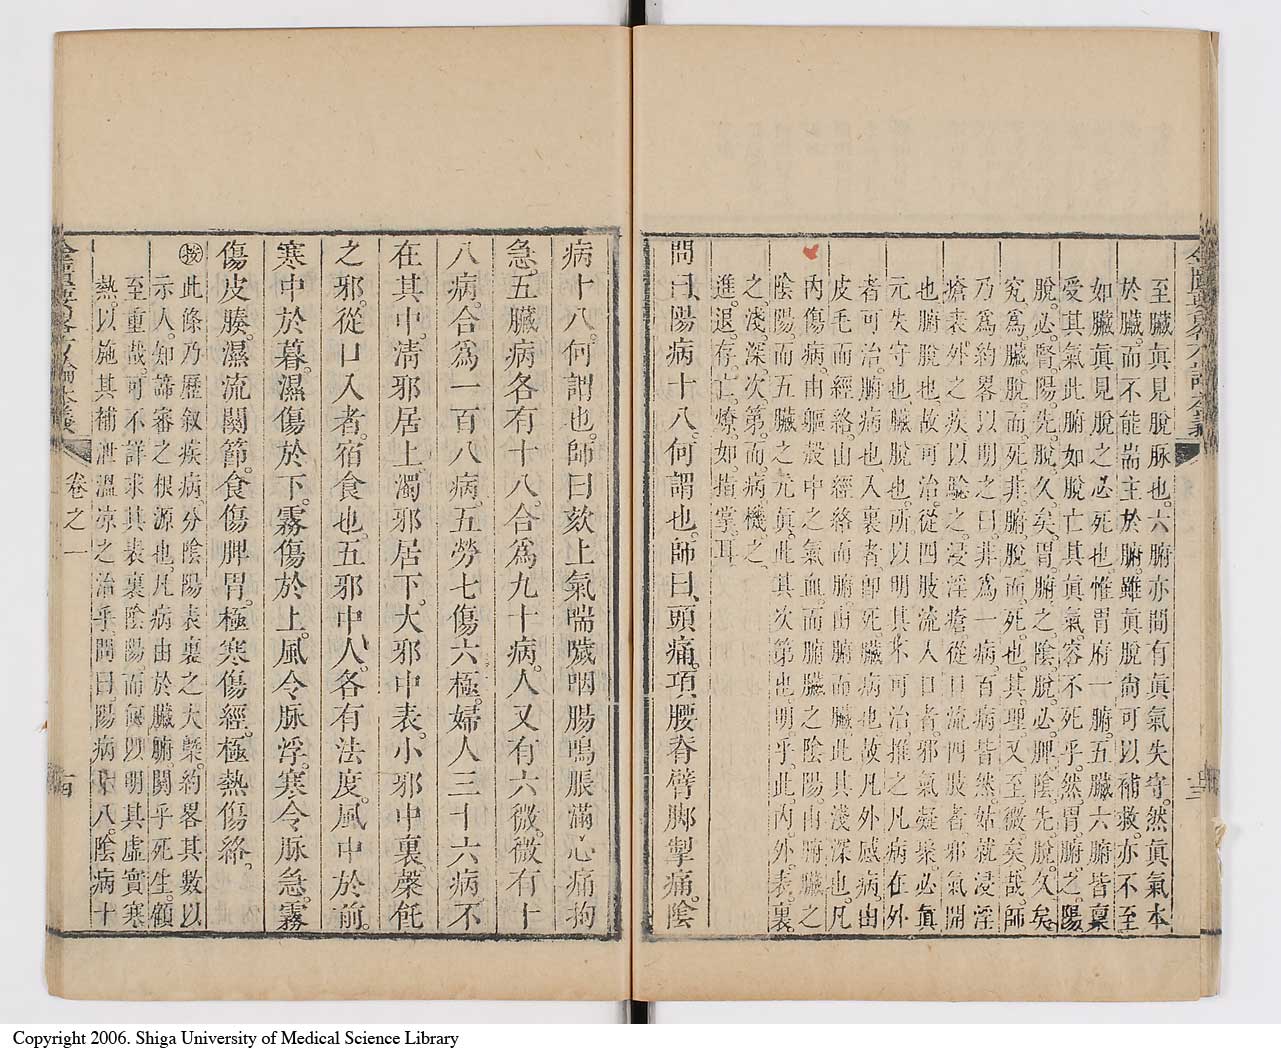 至臟眞見脫脉也。六腑亦間有眞氣失守。然眞氣本
於臟。而不能耑主於腑。雖眞脫尚可以補救。亦不至
如臟眞見脫之必死也。惟胃府一腑。五臟六腑皆稟
受其氣此腑如脫亡其眞氣。容不死乎。然胃腑之陽
脫。必腎陽先脫久矣。胃腑之陰脫。必脾陰先脫久矣。
究爲臟脫而死。非腑脫而死也。其理又至微矣哉。師
乃爲約畧以明之曰。非爲一病。百病皆然。姑就浸淫
瘡表外之疾以驗之。浸淫瘡。從口流四肢者。邪氣開
也腑脫也故可治。從四肢流入口者。邪氣凝聚必眞
元失守也臟脫也。所以明其不可治推之凡病在外
者可治。腑病也入裏者卽死臟病也故凡外感病。由
皮毛而經絡。由經絡而腑由腑而臟此其淺深也。凡
內傷病。由軀殼中之氣血。而腑臟之陰陽。由腑臟之
陰陽。而五臟之元眞。此其次第也。明乎此。內外。表裏。
之淺深。次第。而病機之
進退。存亡。燎如指掌耳。
問曰。陽病十八。何謂也。師曰、頭痛。項、腰脊臂脚掣痛。陰
病十八。何謂也。師曰欬上氣喘噦咽腸鳴脹滿心痛拘
急。五臟病各有十八。合爲九十病。人又有六微。微有十
八病。合爲一百八病。五勞七傷六極。婦人三十六病。不
在其中。清邪居上。濁邪居下。大邪中表。小邪中裏。䅽飥
之邪。從口入者。宿食也。五邪中人。各有法度。風中於前。
寒中於暮。濕傷於下。霧傷於上。風令脉浮。寒令脉急。霧
傷皮腠。濕流關節。食傷脾胃。極寒傷經。極熱傷絡。
按此條乃歷叙疾病。分陰陽表裏之大槩。約畧其數以
示人。知諦審之根源也。凡病由於臟腑。關乎死生。領
至重哉。可不詳求其表裏陰陽。而無以明其虛實寒
熱。以施其補泄溫凉之治乎。問曰。陽病十八。陰病十
卷之一
十四